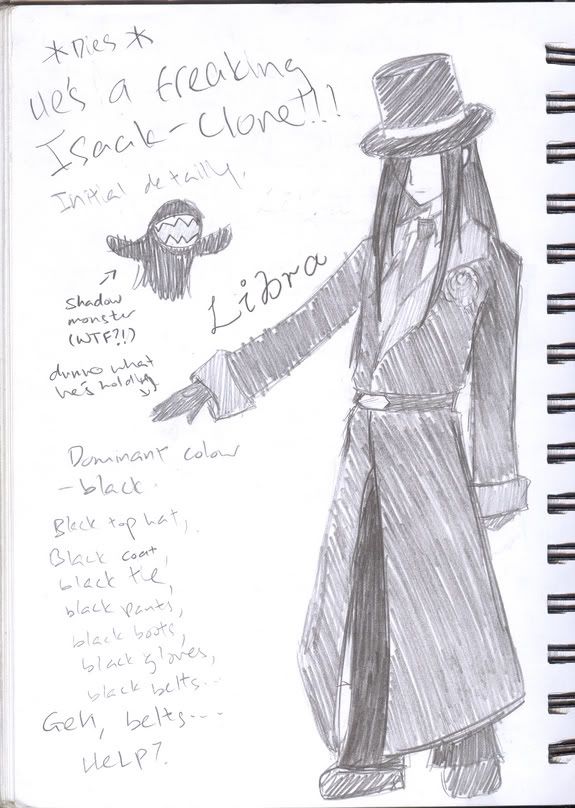 *Dies*
He's a freaking
Isaak-Clone!!!
Initial detailly.
shadow
monster
(WTF?!)
dunno what
he's holding
Libra
Dominant colour
-black.
Black top hat,
Black coat,
black tie,
black pants,
black boots,
black gloves,
black belts...
Geh, belts...
Help?